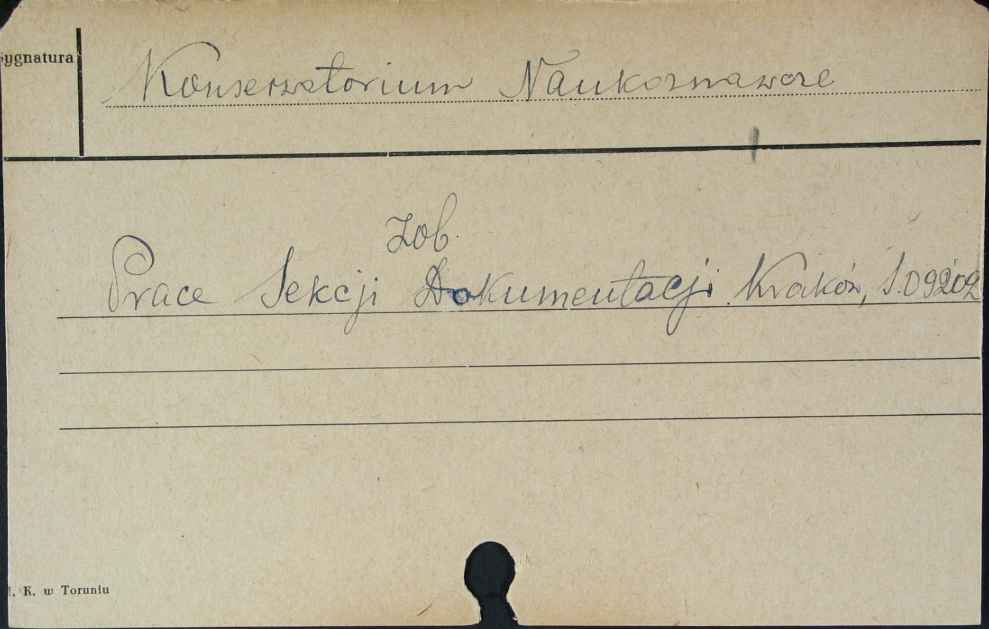 Sygnatura
Konserwatorium Naukoznawcze
zob.
Prace Sekcji Dokumentacji. Kraków, S.09202
K. w Toruniu